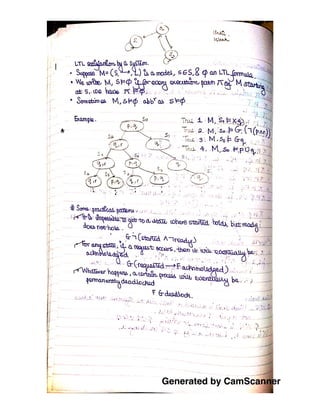 LTL satisfaction by a System
• Suppose M = (S, →, L) is a model, s ∈ S, & φ an LTL formula
• We write M, s ⊨ φ if for every execution path π of M starting
at s, we have π ⊨ φ
• Sometimes M, s ⊨ φ abbr as s ⊨ φ
Example.
S0
p, q
S1
q, r
S2
r
1. M, S0 ⊨
2. M, S0 ⊨ G ¬(p ∧ r)
3. M, S0 ⊨ G
4. M, S0 ⊨
Some practical patterns
It is impossible to get to a state where started holds, but ready
does not hold.
G ¬ (started ∧ ¬ready)
For any state, if a request occurs, then it will eventually be
acknowledged
G (requested → F acknowledged)
Whatever happens, a certain process will eventually be
permanently deadlocked
F G deadlock.
Generated by CamScanner